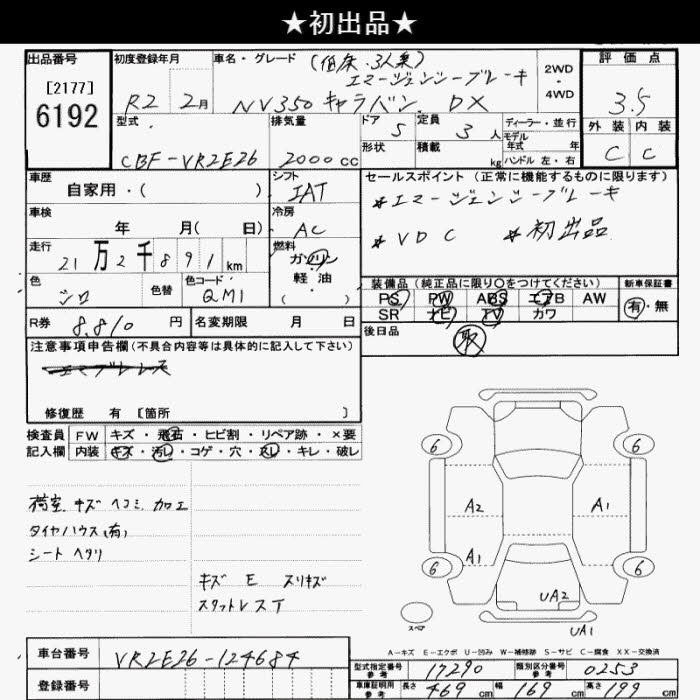 ★初出品★
出品番号
[2177]
6192
初度登録年月
R2 2月
車名・グレード (低床・3人乗)
エマージェンシーブレーキ
NV350 キャラバン DX
2WD
・
4WD
評価点
3.5
外装 内装
C C
型式
CBF-VR2E26
排気量
2000cc
ドア 5
形状
定員 3人
積載 kg
ディーラー・並行
モデル年式 年
ハンドル 左・右
車歴
自家用・( )
シフト
IAT
車検
年 月( 日)
冷房
AC
走行
21万2千891km
燃料
ガソリン
軽油
( ・ )
色
シロ
色替
色コード
QM1
セールスポイント(正常に機能するものに限ります)
*エマージェンシーブレーキ
*VDC *初出品
装備品(純正品に限り○をつけてください)
PS PW ABS エアB AW
SR ナビ TV カワ
新車保証書
有・無
R券 8.810円
名変期限 月 日
後日品
取
注意事項申告欄(不具合内容等は具体的に記入して下さい)
修復歴 有 [箇所 ]
検査員
記入欄
FW キズ・飛石・ヒビ割・リペア跡・×要
内装 キズ・汚レ・コゲ・穴・スレ・キレ・破レ
荷室 キズ ヘコミ 加工
タイヤハウス(有)
シート ヘタリ
キズ E スリキズ
スタットレス T
6 6
A2 A1
A1
6 6
UA2
スペア
UA1
A-キズ E-エクボ U-凹み W-補修跡 S-サビ C-腐食 XX-交換済
車台番号
VR2E26-124684
登録番号
型式指定番号
参考
17290
類別区分番号
参考
0253
車庫証明用
参考
長さ 469cm 幅 169cm 高さ 199cm